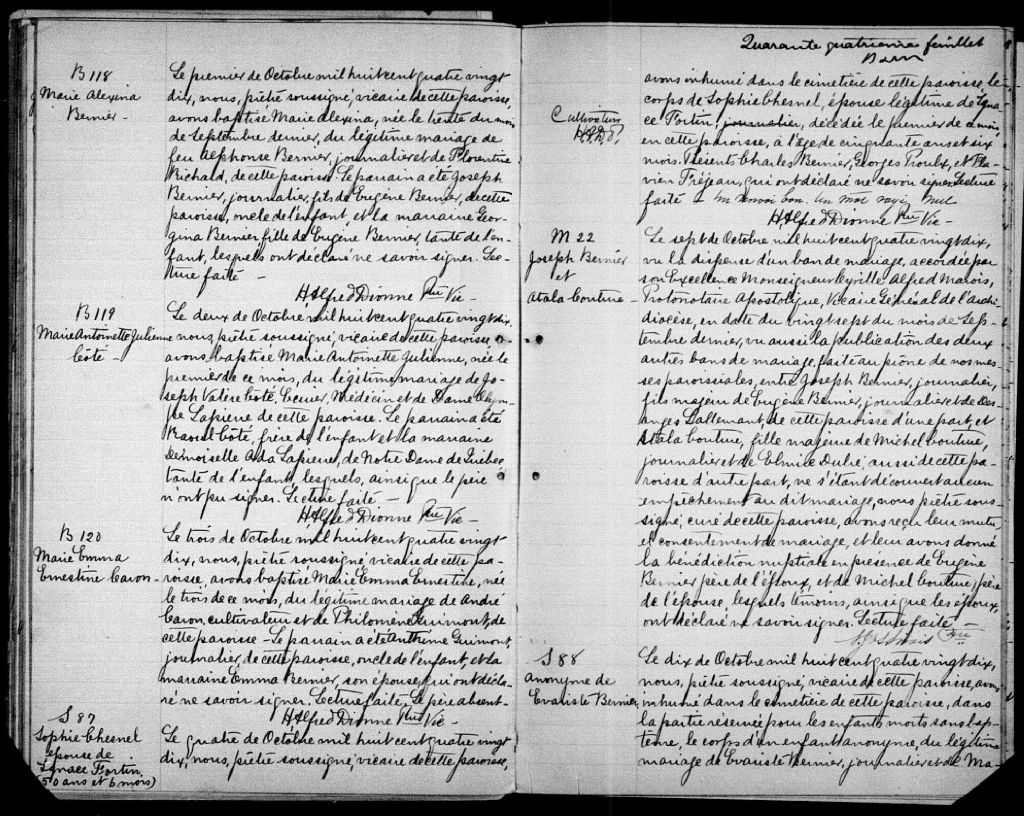 B 118
Marie Alexina
Bernier -
Le premier de Octobre mil huit cent quatre vingt
dix, nous, prêtre soussigné, vicaire de cette paroisse,
avons baptisé Marie Alexina, née le trente du mois
de Septembre dernier, du légitime mariage de
feu Alphonse Bernier, journalier et de Florentine
Richald, de cette paroisse. Le parrain a été Joseph
Bernier, journalier, fils de Eugène Bernier, de cette
paroisse, oncle de l'enfant, et la marraine Geor-
gina Bernier fille de Eugène Bernier, tante de l'en-
fant, lesquels ont déclaré ne savoir signer. Lec-
ture faite -
H Alfred Dionne Ptre Vic -
B 119
Marie Antoinette Julienne
Côté -
Le deux de Octobre mil huit cent quatre vingt dix,
nous, prêtre soussigné, vicaire de cette paroisse,
avons baptisé Marie Antoinette Julienne, née le
premier de ce mois, du légitime mariage de Jo-
seph Valère Côté, Ecuier, Médecin et de Dame Olym-
pe Lapierre de cette paroisse. Le parrain a été
Raoul Côté, frère de l'enfant et la marraine
Demoiselle Ada Lapierre, de Notre Dame de Québec
tante de l'enfant, lesquels, ainsi que le père
n'ont pu signer. Lecture faite -
H Alfred Dionne Ptre Vic -
B 120
Marie Emma
Ernestine Caron -
Le trois de Octobre mil huit cent quatre vingt
dix, nous, prêtre soussigné, vicaire de cette pa-
roisse, avons baptisé Marie Emma Ernestine, née
le trois de ce mois, du légitime mariage de André
Caron, cultivateur et de Philomène Guimont, de
cette paroisse - Le parrain a été Anthime Guimont,
journalier, de cette paroisse, oncle de l'enfant, et la
marraine Emma Bernier, son épouse, qui ont décla-
ré ne savoir signer. Lecture faite, Le père absent -
H Alfred Dionne Ptre Vic -
S 87
Sophie Chesnel
épouse de
Ignace Fortin,
50 ans et 6 mois)
Le quatre de Octobre mil huit cent quatre vingt
dix, nous, prêtre soussigné, vicaire de cette paroisse,
Quarante quatrième feuillet
Cultivateur
H.A.D.P.
avons inhumé dans le cimetière de cette paroisse, le
corps de Sophie Chesnel, épouse légitime de Igna
ce Fortin, journalier, décédée le premier de ce mois,
en cette paroisse, à l'âge de cinquante ans et six
mois. Présents Charles Bernier, Georges Proulx, et Fla-
vien Tréjean, qui ont déclaré ne savoir signer Lecture
faite - un renvoi bon. un mot rayé nul
H Alfred Dionne Ptre Vic -
M 22
Joseph Bernier
et
Atala Couture -
Le sept de Octobre mil huit cent quatre vingt dix,
vu la dispense d'un ban de mariage, accordée par
son Excellence Monseigneur Cyrille Alfred Marois,
Protonotaire Apostolique, Vicaire Général de l'Archi-
diocèse, en date du vingt sept du mois de Sep-
tembre dernier, vu aussi la publication des deux
autres bans de mariage, faite au prône de nos mes-
ses paroissiales, entre Joseph Bernier, journalier,
fils majeur de Eugène Bernier, journalier et de Des-
anges Lallemant, de cette paroisse d'une part, et
Atala Couture, fille majeure de Michel Couture,
journalier et de Elmire Dubé, aussi de cette pa-
roisse d'autre part, ne s'étant découvert aucun
empêchement au dit mariage, nous prêtre sous-
signé, curé de cette paroisse, avons reçu leur mutu-
el consentement de mariage, et leur avons donné
la bénédiction nuptiale en présence de Eugène
Bernier père de l'époux, et de Michel Couture, père
de l'épouse, lesquels témoins, ainsi que les époux,
ont déclaré ne savoir signer. Lecture faite -
Ptre
S 88
Anonyme de
Evariste Bernier,
Le dix de Octobre mil huit cent quatre vingt dix,
nous, prêtre soussigné, vicaire de cette paroisse, avons
inhumé dans le cimetière de cette paroisse, dans
la partie réservée pour les enfants morts sans bap-
tême, le corps d'un enfant anonyme, du légitime
mariage de Evariste Bernier, journalier et de Ma-